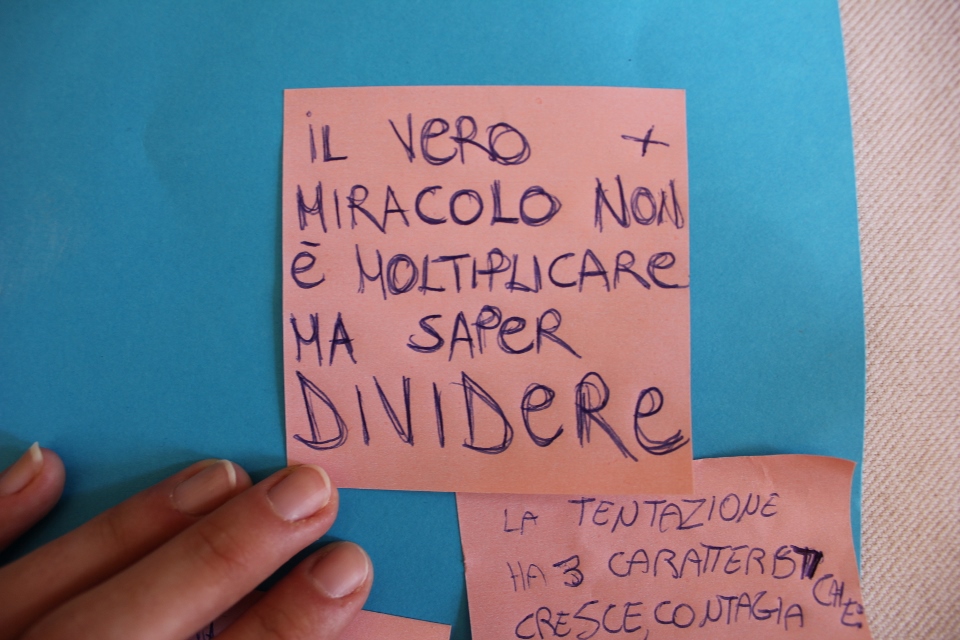 iL VeRO +
MIRACOLO NON
è MOLTIPLICARe
MA SAPeR
DiVIDeRe
LA TENTAZIONE
HA 3 CARATTERISTICHE:
CRESCE, CONTAGIA